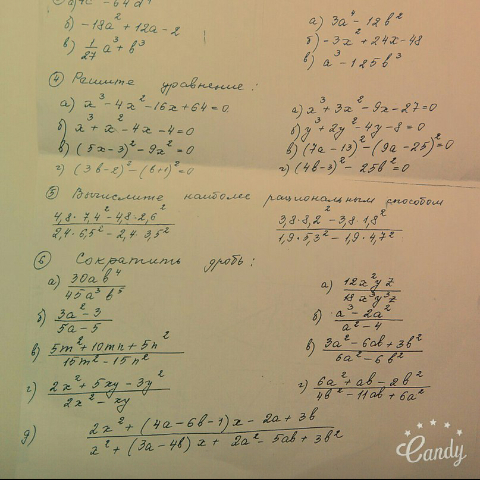 б) -18a² + 12a - 2
в) 1/27 a³ + b³
а) 3a⁴ - 12b²
б) -3x² + 24x - 48
в) a³ - 125b³
④ Решите уравнение:
а) x³ - 4x² - 16x + 64 = 0
б) x³ + x² - 4x - 4 = 0
в) (5x - 3)² - 9x² = 0
г) (3b - 2)² - (b + 1)² = 0
а) x³ + 3x² - 9x - 27 = 0
б) y³ + 2y² - 4y - 8 = 0
в) (7a - 13)² - (9a - 25)² = 0
г) (4b - 3)² - 25b² = 0
⑤ Вычислите наиболее рациональным способом
4,8 · 7,4² - 4,8 · 2,6²
2,4 · 6,5² - 2,4 · 3,5²
3,8 · 8,2² - 3,8 · 1,8²
1,9 · 5,3² - 1,9 · 4,7²
⑥ Сократить дробь:
а) 30ab⁴ / 45a³b⁵
б) 3a² - 3 / 5a - 5
в) 5m² + 10mn + 5n² / 15m² - 15n²
г) 2x² + 5xy - 3y² / 2x² - xy
а) 12x²yz / 18x³y³z
б) a³ - 2a² / a² - 4
в) 3a² - 6ab + 3b² / 6a² - 6b²
г) 6a² + ab - 2b² / 4b² - 11ab + 6a²
д) 2x² + (4a - 6b - 1)x - 2a + 3b
x² + (3a - 4b)x + 2a² - 5ab + 3b²
Candy